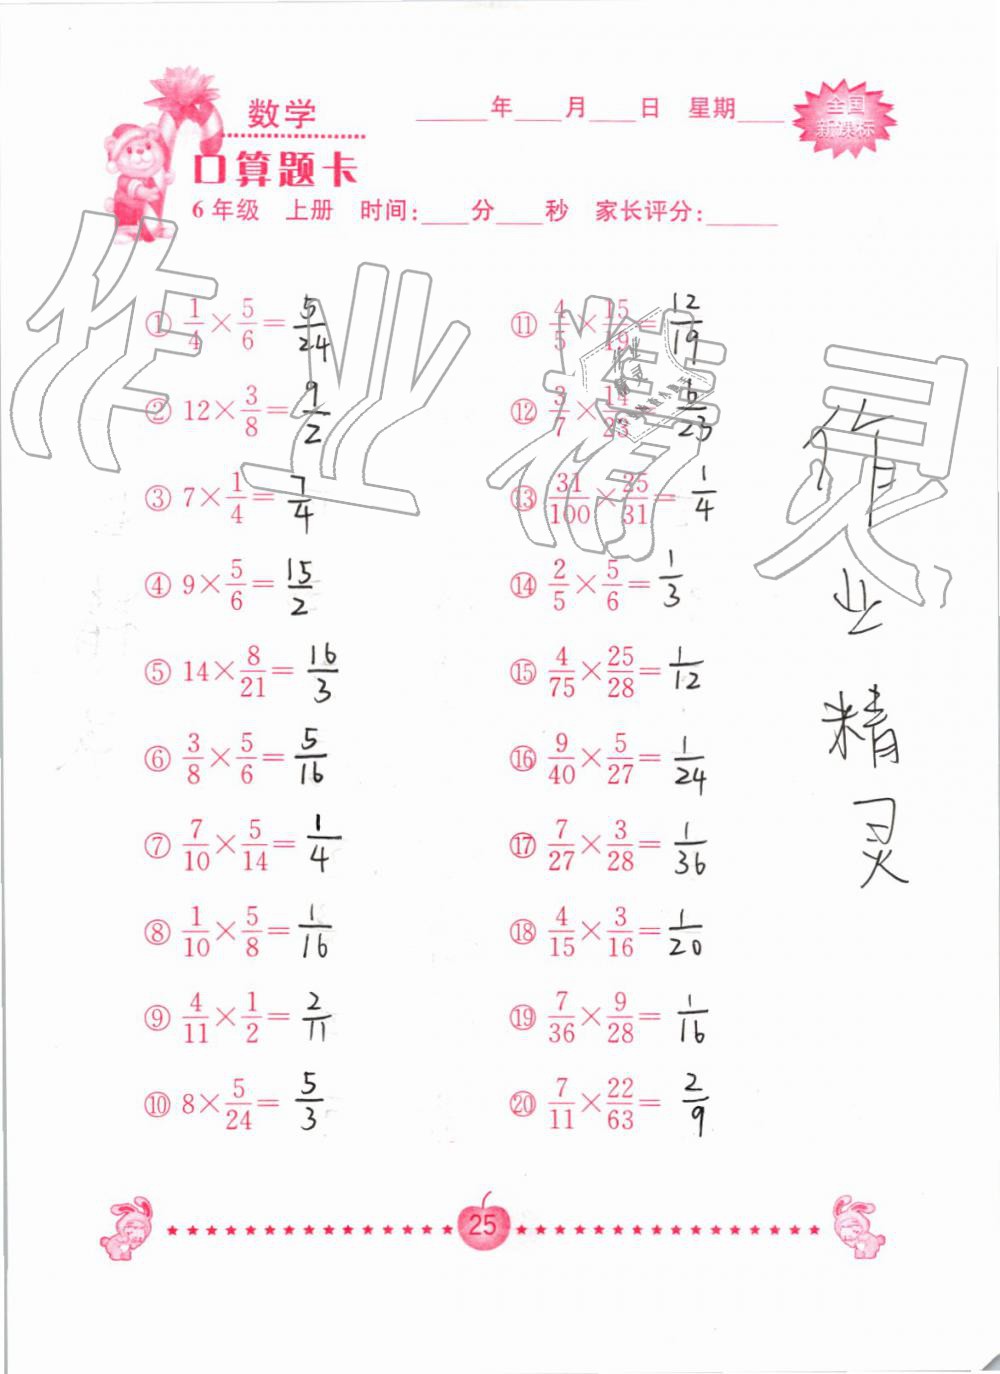 数学
____年____月____日 星期____
全国
新课标
口算题卡
6年级 上册 时间:____分____秒 家长评分:______
① 1/4×5/6= 5/24
② 12×3/8= 9/2
③ 7×1/4= 7/4
④ 9×5/6= 15/2
⑤ 14×8/21= 16/3
⑥ 3/8×5/6= 5/16
⑦ 7/10×5/14= 1/4
⑧ 1/10×5/8= 1/16
⑨ 4/11×1/2= 2/11
⑩ 8×5/24= 5/3
⑪ 4/5×15/19= 12/19
⑫ 3/7×14/23= 6/23
⑬ 31/100×25/31= 1/4
⑭ 2/5×5/6= 1/3
⑮ 4/75×25/28= 1/12
⑯ 9/40×5/27= 1/24
⑰ 7/27×3/28= 1/36
⑱ 4/15×3/16= 1/20
⑲ 7/36×9/28= 1/16
⑳ 7/11×22/63= 2/9
作业精灵
作
业
精
灵
25